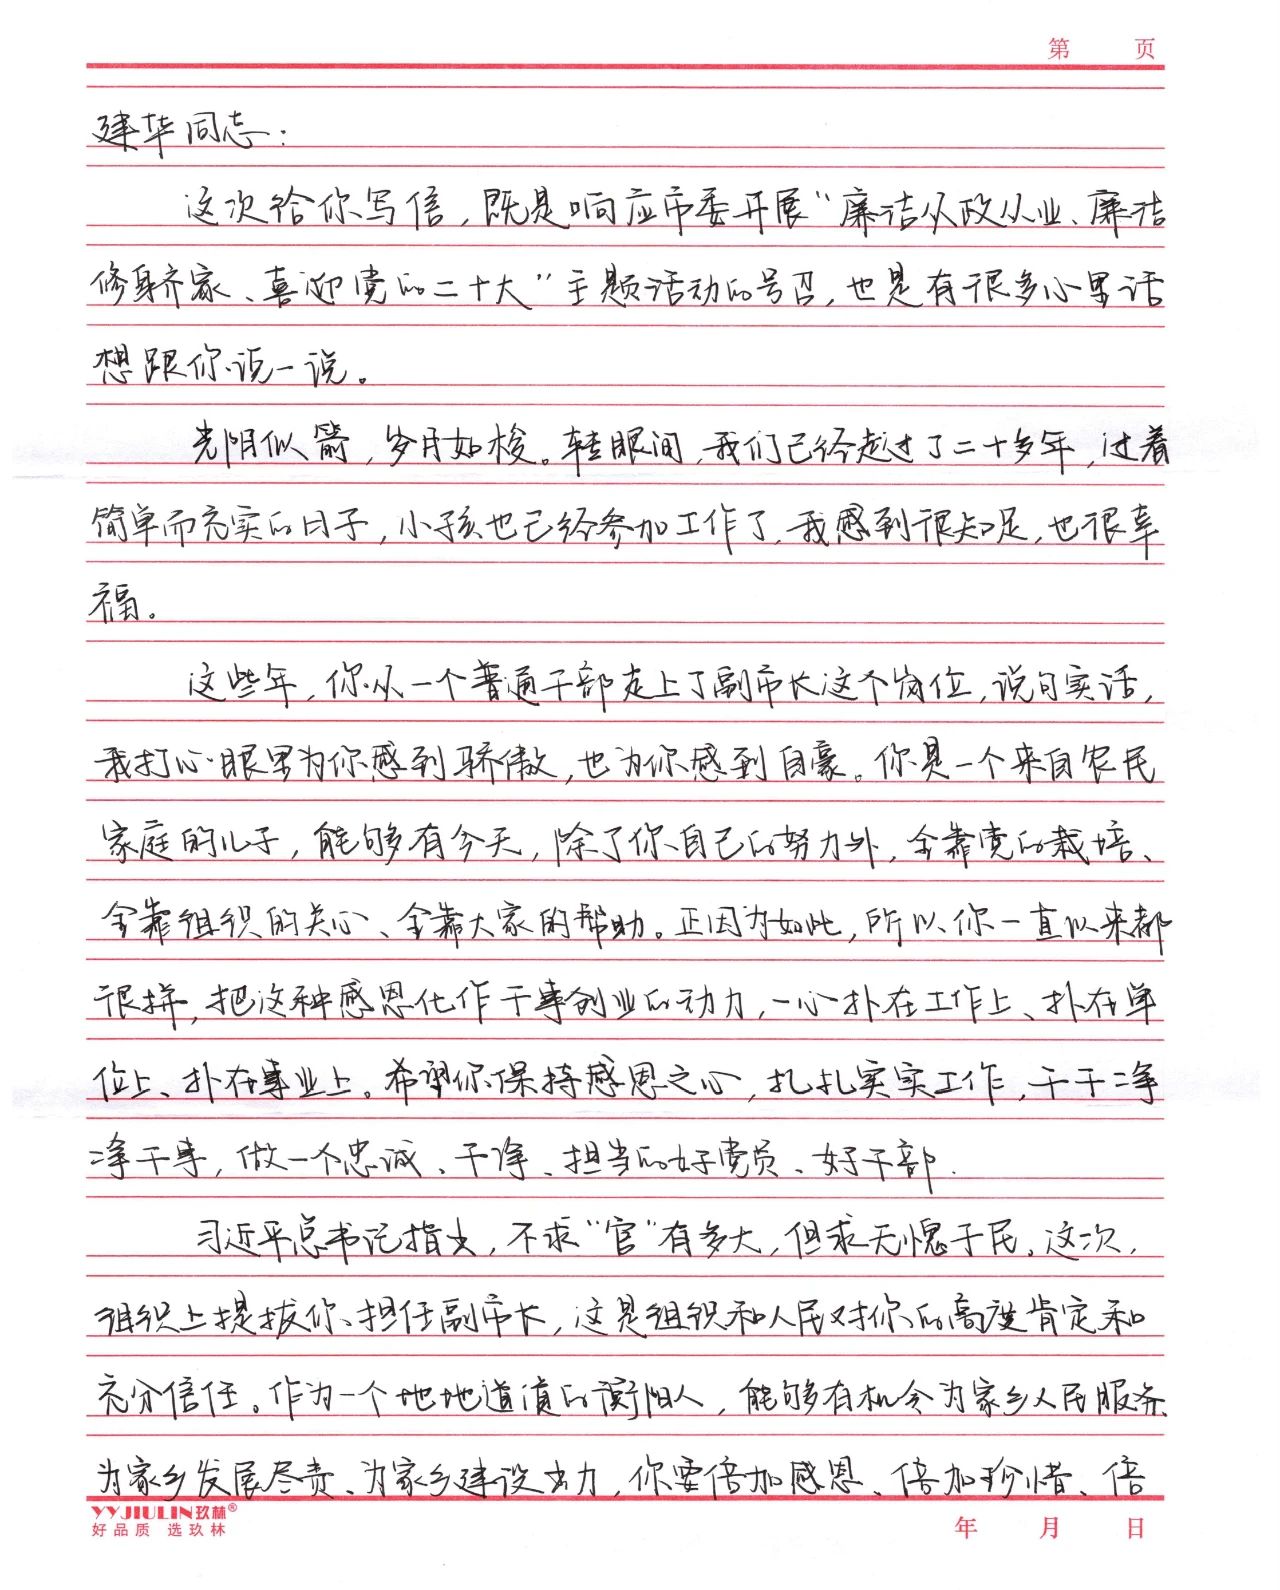 第 页
建华同志：
这次给你写信，既是响应市委开展“廉洁从政从业、廉洁
修身齐家、喜迎党的二十大”主题活动的号召，也是有很多心里话
想跟你说一说。
光阴似箭，岁月如梭。转眼间，我们已经走过了二十多年，过着
简单而充实的日子，小孩也已经参加工作了，我感到很知足，也很幸
福。
这些年，你从一个普通干部走上了副市长这个岗位，说句实话，
我打心眼里为你感到骄傲，也为你感到自豪。你是一个来自农民
家庭的儿子，能够有今天，除了你自己的努力外，全靠党的栽培、
全靠组织的关心、全靠大家的帮助。正因为如此，所以你一直以来都
很拼，把这种感恩化作干事创业的动力，一心扑在工作上、扑在单
位上、扑在事业上。希望你保持感恩之心，扎扎实实工作，干干净
净干事，做一个忠诚、干净、担当的好党员、好干部.
习近平总书记指出，不求“官”有多大，但求无愧于民。这次，
组织上提拔你担任副市长，这是组织和人民对你的高度肯定和
充分信任。作为一个地地道道的衡阳人，能够有机会为家乡人民服务、
为家乡发展尽责、为家乡建设出力，你要倍加感恩、倍加珍惜、倍
YYJIULIN玖林®
好品质 选玖林
年 月 日